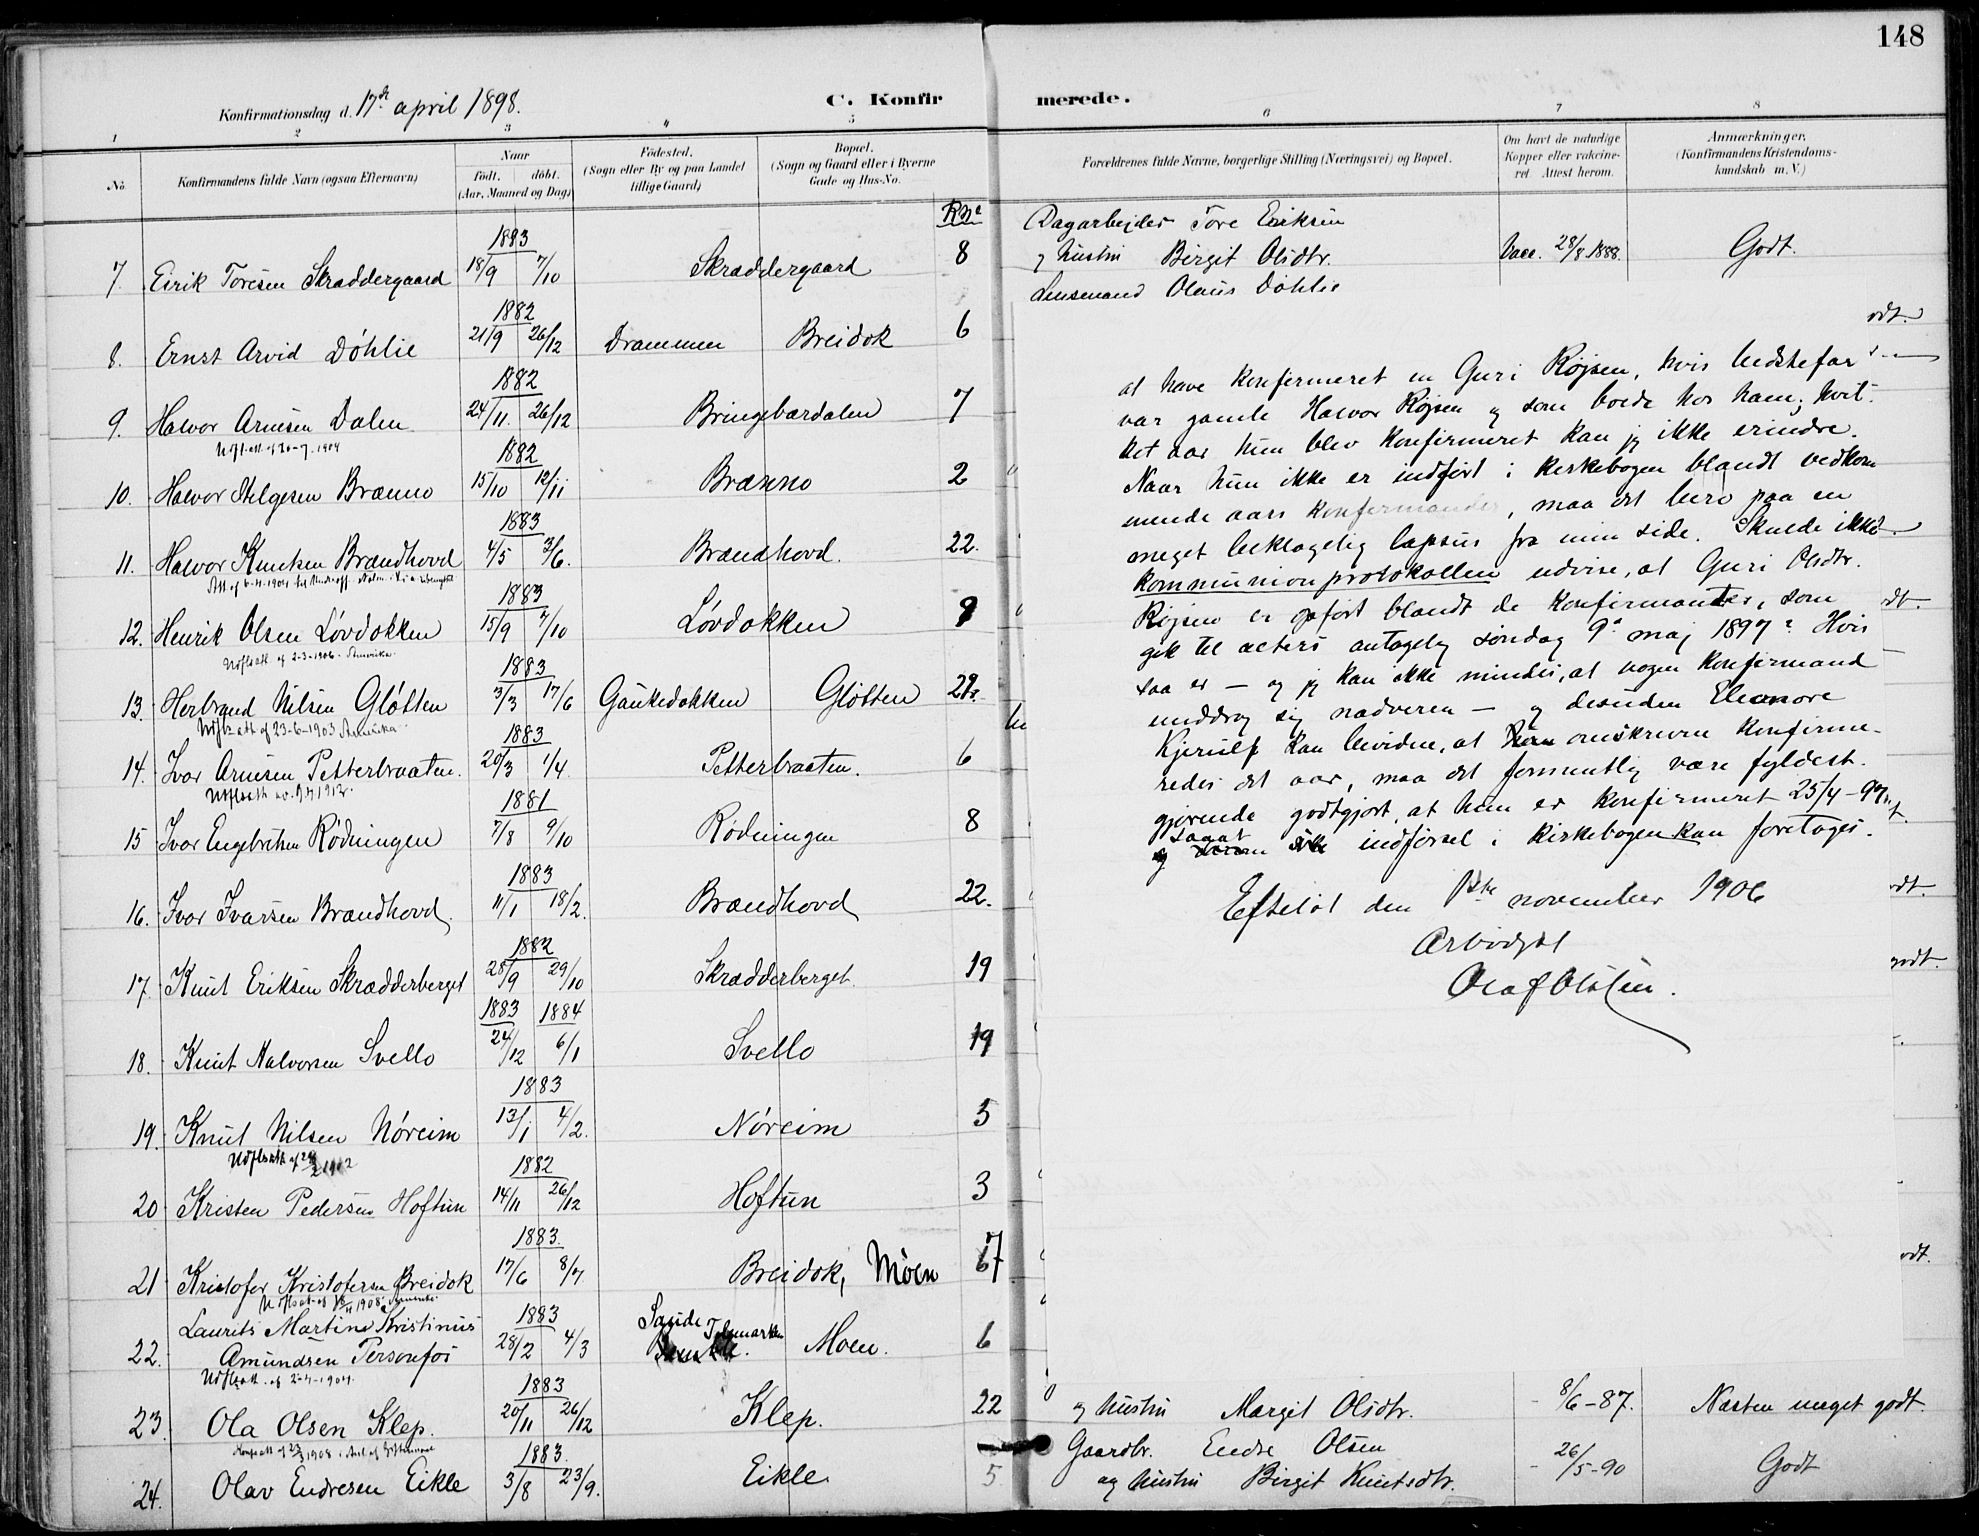 148
Konfirmationsdag d. 17de april 1898.
C. Konfirmerede.
1 2 3 4 5 6 7 8
No.
Konfirmandens fulde Navn (ogsaa Efternavn)
Naar
født. døbt.
(Aar, Maaned og Dag)
Fødested.
(Sogn eller By og paa Landet
tillige Gaard)
Bopæl.
(Sogn og Gaard eller i Byerne
Gade og Hus-No.
Forældrenes fulde Navne, borgerlige Stilling (Næringsvei) og Bopæl.
Om havt de naturlige
Kopper eller vakcine-
ret. Attest herom.
Anmærkninger.
(Konfirmandens Kristendoms-
kundskab m. V.)
7. Eirik Toresen Skraddergaard 1883 18/9 7/10 Skraddergaard 8
8. Ernst Arvid Döhlie 1882 21/9 26/12 Drammen Breidok 6
9. Halvor Arnesen Dalen 1882 24/11. 26/12 Bringebærdalen 7
Udfl.att. af 20-7-1904
10. Halvor Helgesen Brænno 1882 15/10 12/11 Brænno 2
11. Halvor Knutsen Brændhovd 1883 4/5 3/6. Brændhovd. 22.
12. Henrik Olsen Lövdokken 1883 15/9 7/10 Lövdokken 9
Udflatt. af 2-3-1906. Amerika.
13. Herbrand Nilsen Glötten 1883 3/3 17/6 Gaukedokken Glötten 22.
Udfl.att af 23-6-1903 Amerika
14. Ivar Arnesen Petterbraaten. 1883 20/3 1/4. Petterbraaten. 6
15 Ivar Engebretsen Rödningen 1881 7/8 9/10 Rödningen 8
16. Ivar Ivarsen Brændhovd. 1883 11/1 18/2. Brændhovd 22.
17. Knut Eriksen Skrædderberget 1882 28/9 29/10 Skrædderberget. 19
18. Knut Halvorsen Svello 1883 24/12 1884 6/1 Svello 19
19. Knut Nilsen Nöreim 1883 13/1 4/2. Nöreim 5
20 Kristen Pedersen Hoftun 1882 14/11 26/12 Hoftun 3
21 Kristofer Kristofersen Breidok 1883. 17/6 8/7 Breidok, Möen 67
22. Laurits Martin Kristinus
Amundsen Personfos 1883 28/2 4/3 Saude Telemarken Moen. 6
Udflatt. af 2-4-1904.
23. Ola Olsen Klep. 1883 20/11 26/12 Klep. 22
24. Olav Endresen Eikle 1883. 3/8 23/9. Eikle 5
Dagarbejder Tore Eriksen
og hustru Birgit Olsdtr. Vacc. 28/8 1888. Godt.
Lensmand Olaus Döhlie
at have konfirmeret en Guri Röjsen, hvis bedstefar
var gamle Halvor Röjsen og som boede hos ham; hvil-
ket aar hun blev konfirmeret kan jeg ikke erindre.
Naar hun ikke er indført i kirkebogen blandt vedkom
mende aars konfirmander, maa det bero paa en
meget beklagelig lapsus fra min side. Skulde ikke
kommunionprotokollen udvise, at Guri Olsdtr.
Röjsen er opført blandt de konfirmanter, som
gik til alters antagelig søndag 9de maj 1897? Hvis
saa er — og jeg kan ikke mindes, at nogen konfirmand
unddrog sig nadveren — og desuden Eleonore
Kjerulf kan bevidne, at omskrevne konfirme-
redes det aar, maa det formentlig være fyldest-
gjørende godtgjort, at hun er konfirmeret 25/4-97
indførsel i kirkebogen kan foretages.
Efteløt den 1ste november 1906
Ærbødigst
Olaf Olsen.
og hustru Margit Olsdtr. 8/6-87. Næsten meget godt.
Gaardbr. Endre Olsen
og hustru Birgit Knutsdtr. 26/5-90 Godt